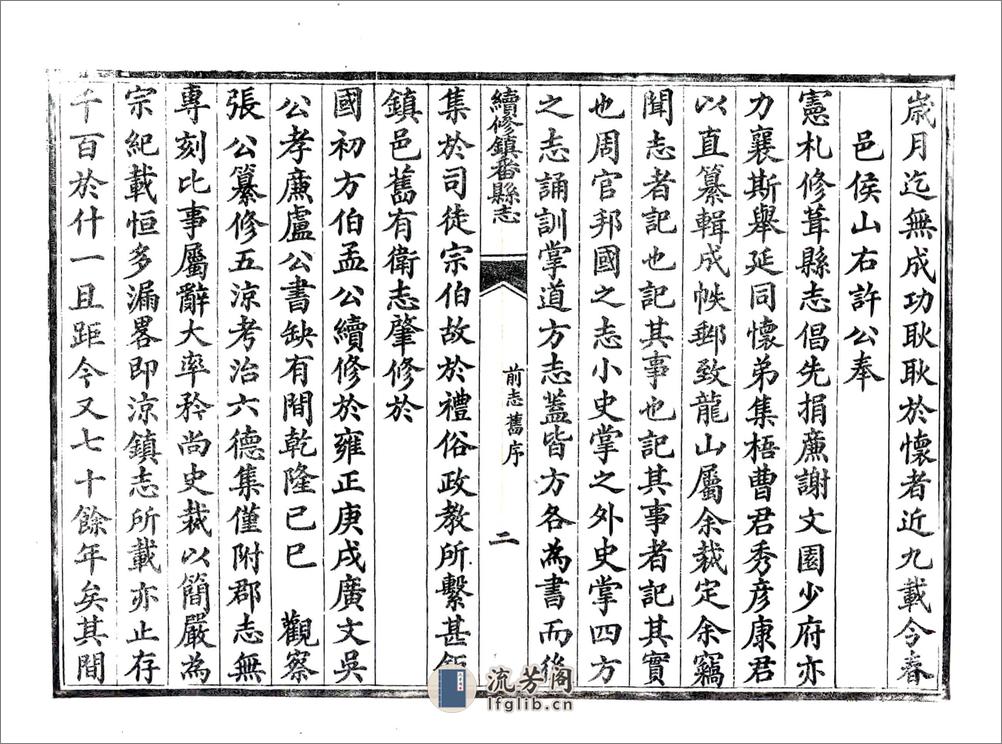 歲月迄無成功耿耿於懷者近九載今春
邑侯山右許公奉
憲札修葺縣志倡先捐廉謝文園少府亦
力襄斯舉延同懷弟集梧曹君秀彥康君
以直纂輯成帙郵致龍山屬余裁定余竊
聞志者記也記其事也記其事者記其實
也周官邦國之志小史掌之外史掌四方
之志誦訓掌道方志蓋皆方各為書而後
續修鎮番縣志
前志舊序
二
集於司徒宗伯故於禮俗政教所繫甚鉅
鎮邑舊有衛志肇修於
國初方伯孟公續修於雍正庚戌廣文吳
公孝廉盧公書缺有間乾隆己巳 觀察
張公纂修五涼考治六德集僅附郡志無
專刻比事屬辭大率矜尚史裁以簡嚴為
宗紀載恒多漏畧即涼鎮志所載亦止存
千百於什一且距今又七十餘年矣其間
流芳阁
lfglib.cn